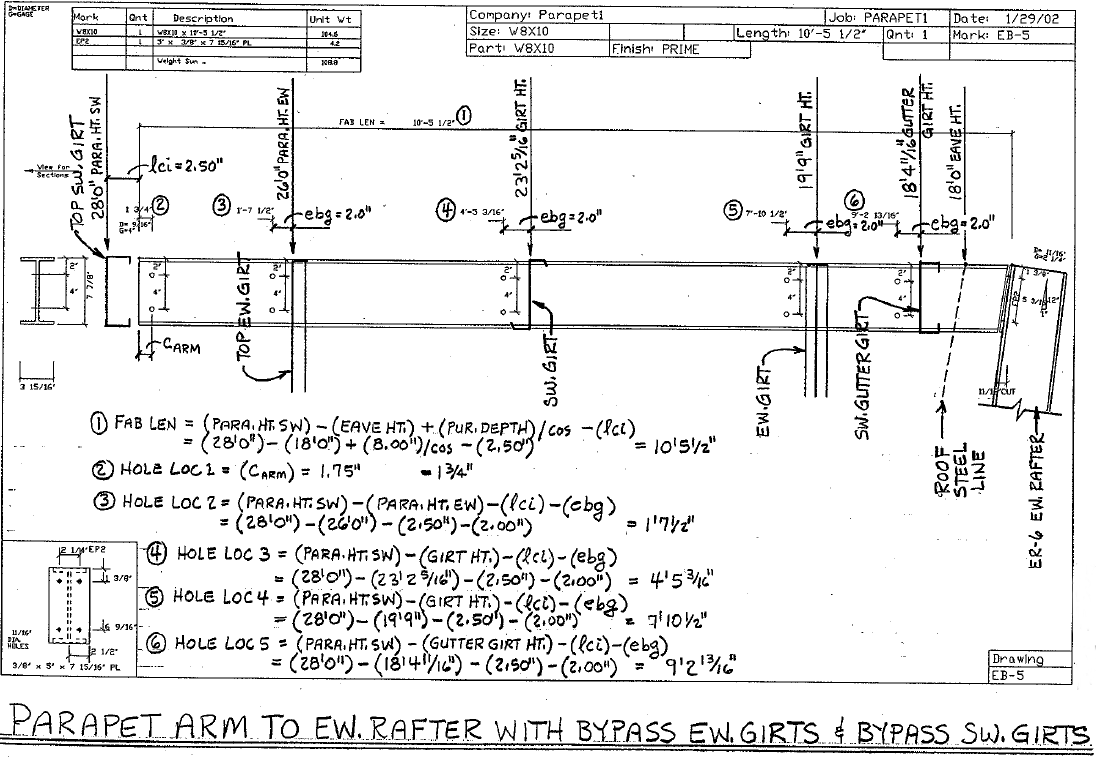 D=DIAMETER
G=GAGE
Mark Qnt Description Unit Wt
W8X10 1 W8X10 x 10'-5 1/2" 104.6
EP2 1 5' x 3/8' x 7 15/16' PL 4.2
Weight Sum = 108.8
Company: Parapet1 Job: PARAPET1 Date: 1/29/02
Size: W8X10 Length: 10'-5 1/2" Qnt: 1 Mark: EB-5
Part: W8X10 Finish: PRIME
TOP SW. GIRT
28'0" PARA. HT. SW
26'0" PARA. HT. EW
23'2 5/16" GIRT HT.
19'9" GIRT HT.
18'4 11/16" GUTTER
GIRT HT.
18'0" EAVE HT.
FAB LEN = 10'-5 1/2' ①
View for
Sections
lci = 2.50"
1 3/4' ②
D= 9/16'
③ 1'-7 1/2' ebg = 2.0"
④ 4'-5 3/16' ebg = 2.0"
⑤ 7'-10 1/2' ebg = 2.0"
⑥ 9'-2 13/16' ebg = 2.0"
2' 4' 7 7/8'
2' 4'
2' 4'
2' 4'
2' 4'
2' 4'
1 3/8'
EP2
12'
3 15/16'
CARM
TOP EW. GIRT
SW. GIRT
EW. GIRT
SW. GUTTER GIRT
ROOF
STEEL
LINE
ER-6 EW. RAFTER
① FAB LEN = (PARA. HT. SW) - (EAVE HT.) + (PUR. DEPTH)/cos - (lci)
= (28'0") - (18'0") + (8.00")/cos - (2.50") = 10'5 1/2"
② HOLE LOC 1 = (CARM) = 1.75" = 1 3/4"
③ HOLE LOC 2 = (PARA. HT. SW) - (PARA. HT. EW) - (lci) - (ebg)
= (28'0") - (26'0") - (2.50") - (2.00") = 1'7 1/2"
④ HOLE LOC 3 = (PARA. HT. SW) - (GIRT HT.) - (lci) - (ebg)
= (28'0") - (23'2 5/16") - (2.50") - (2.00") = 4'5 3/16"
⑤ HOLE LOC 4 = (PARA. HT. SW) - (GIRT HT.) - (lci) - (ebg)
= (28'0") - (19'9") - (2.50") - (2.00") = 7'10 1/2"
⑥ HOLE LOC 5 = (PARA. HT. SW) - (GUTTER GIRT HT.) - (lci) - (ebg)
= (28'0") - (18'4 11/16") - (2.50") - (2.00") = 9'2 13/16"
2 1/4' EP2
1 3/8'
6 9/16'
11/16'
DIA.
HOLES
2 1/2'
3/8' x 5' x 7 15/16' PL
Drawing
EB-5
PARAPET ARM TO EW. RAFTER WITH BYPASS EW. GIRTS & BYPASS SW. GIRTS